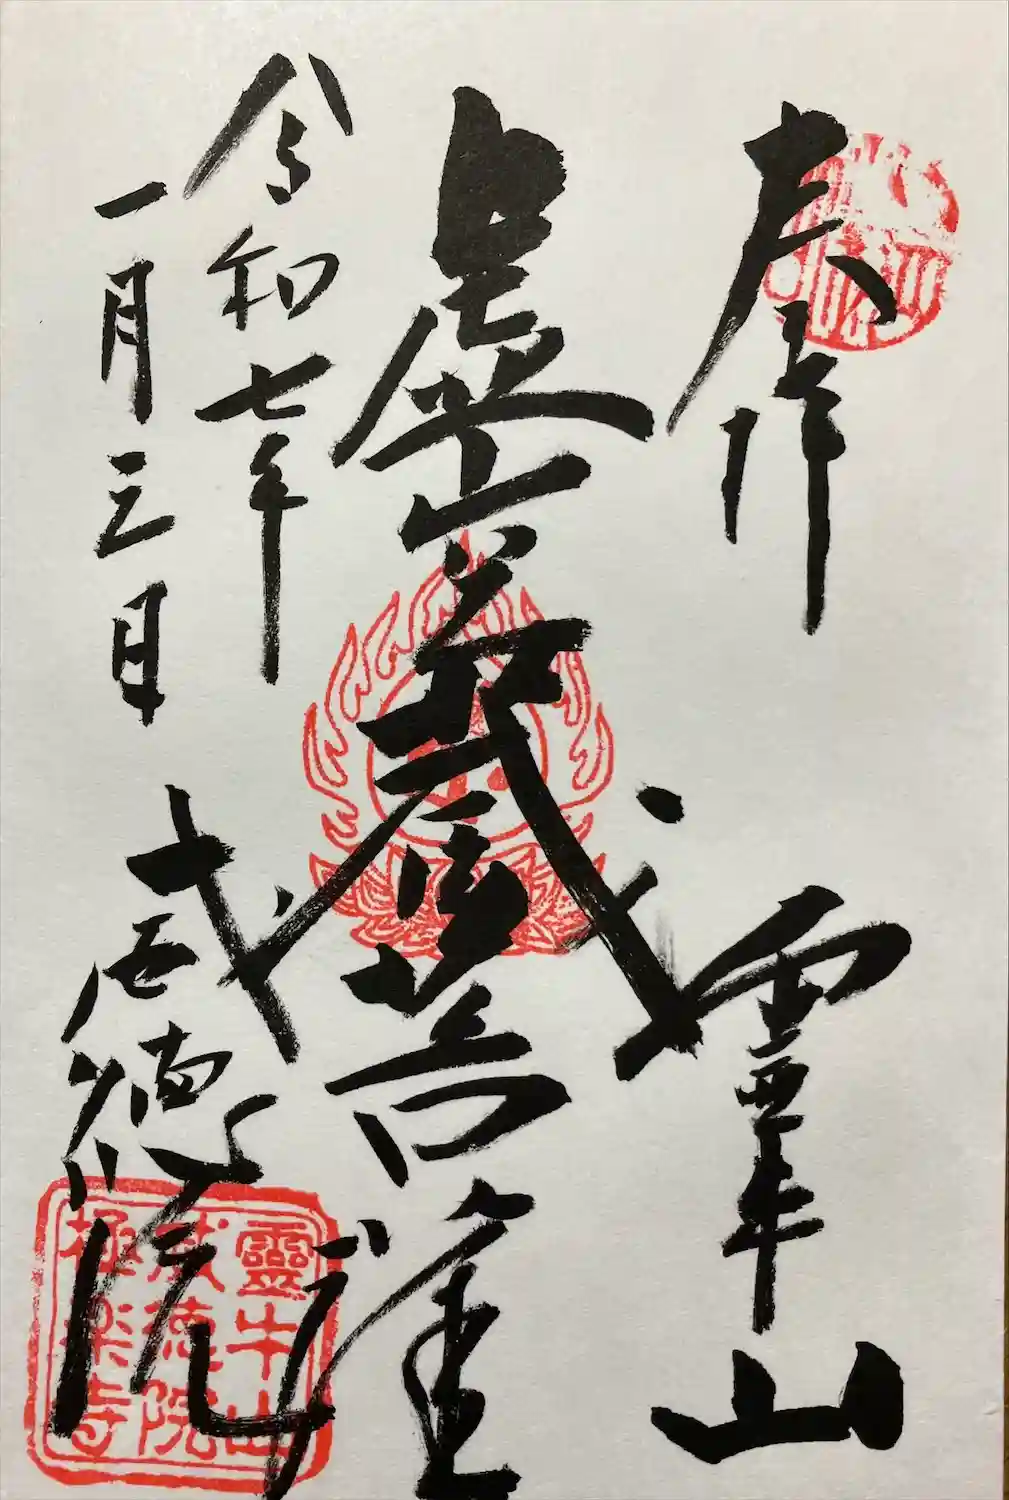 奉拝
霊牛山
虚空蔵菩薩
令和七年
一月三日
威徳院
靈牛山
威徳院
極楽寺